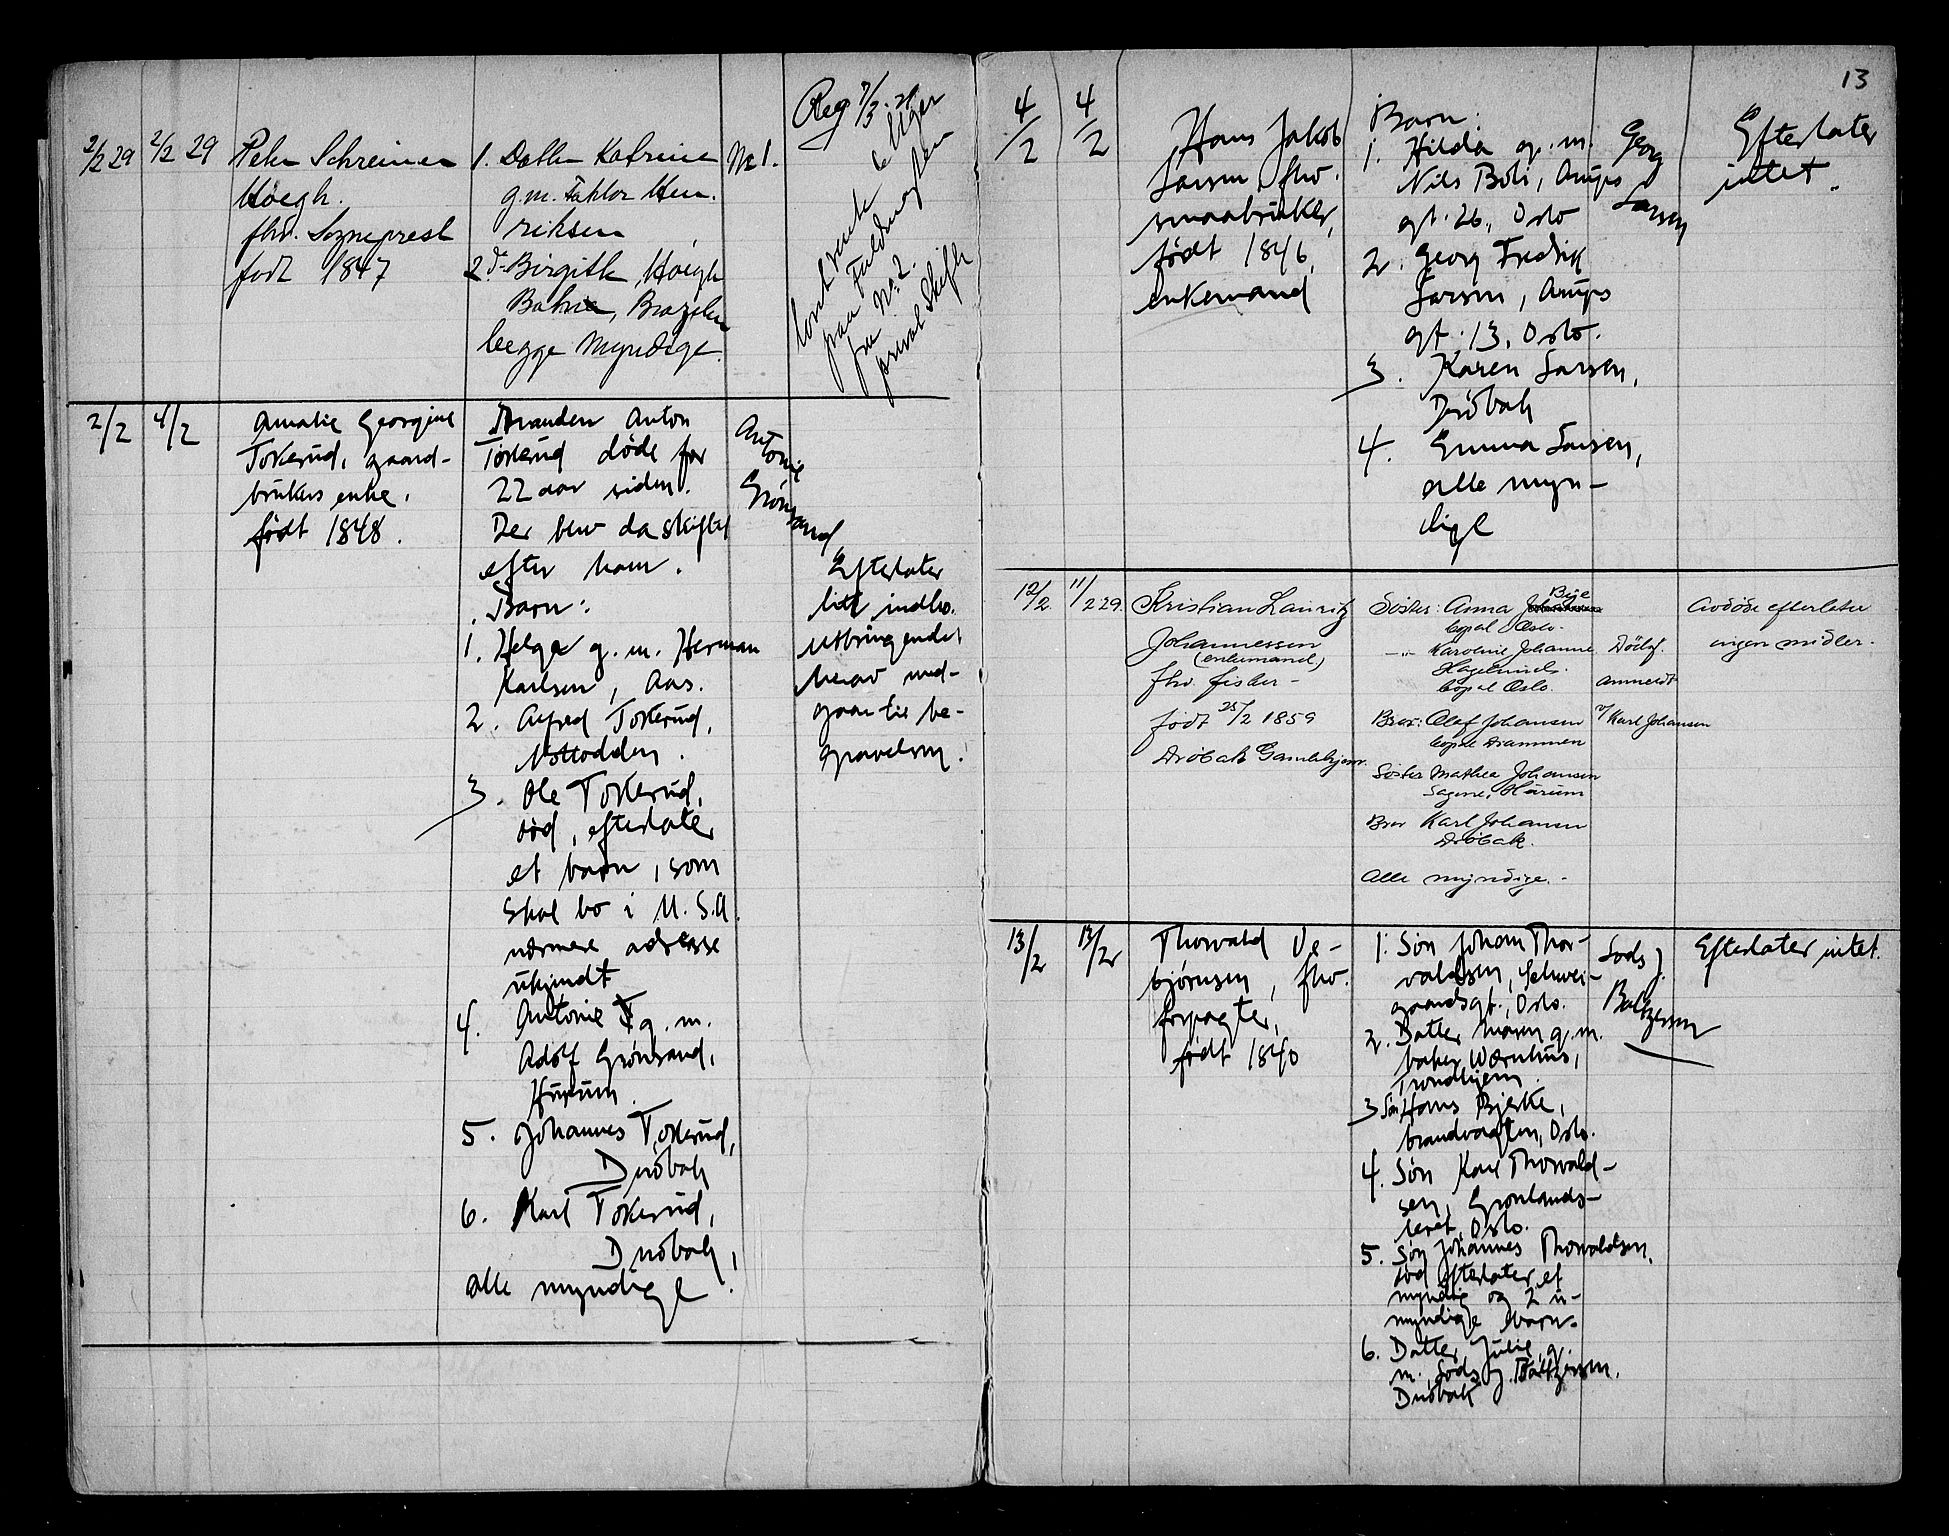 2/2 29
2/2 29
Peter Schreiner
Høegh.
fhv. Sogneprest
født 1847
1. Datter Katrine
g.m. Faktor Hen-
riksen
2. d. Birgitte Høegh
Bahia, Brazilien
begge myndige.
No 1.
Reg 7/3. 29
beligger
paa Fuldmagten
fra No 2.
privat Skifte
2/2
4/2
Amalie Georgine
Tokerud, gaard-
brukers enke,
født 1848.
Manden Anton
Tokerud døde for
22 aar siden.
Der blev da skiftet
efter ham.
Barn:
1. Helga g. m. Herman
Karlsen, Aas.
2. Alfred Tokerud,
Nottodden.
3. Ole Tokerud,
død, efterlater
et barn, som
skal bo i U.S.A.
nærmere adresse
ukjendt
4. Antonie g. m.
Adolf Grønsand,
Hurum.
5. Johannes Tokerud,
Drøbak
6. Karl Tokerud,
Drøbak,
alle myndige.
Antonie
Grønsand
Efterlater
litt indbo.
utbringendet
herav med-
gaar til be-
gravelsen.
13
4/2
4/2
Hans Jakob
Larsen, fhv.
smaabruker,
født 1846,
enkemand
Barn:
1. Hilda g. m.
Nils Boli, Arups
gt. 26., Oslo
2. Georg Fredrik
Larsen, Arups
gt. 13, Oslo.
3. Karen Larsen,
Drøbak
4. Emma Larsen,
alle myn-
dige
Georg
Larsen
Efterlater
intet.
12/2.
11/2 29.
Kristian Lauritz
Johannessen
(enkemand)
fhv. fisker -
født 25/2 1859
Drøbak Gamlehjem.
Søster: Anna Bye
bopel Oslo.
-"- Karoline Johanne
Hagelund.
bopel Oslo.
Bror: Olaf Johansen
bopel Drammen
Søster Mathea Johansen
Sagene, Hurum
Bror Karl Johansen
Drøbak.
Alle myndige. -
Dødsf.
anmeldt
v/ Karl Johansen
Avdøde efterlater
ingen midler.
13/2
13/2
Thorvald Ve-
bjørnsen, fhv.
forpagter,
født 1840
1. Søn Johan Thor-
valdsen, Schwei-
gaardsgt., Oslo.
2. Datter Maren g. m.
baker Wærnhus,
Trondhjem.
3 Søn Hans Bjerke,
brandvagten, Oslo.
4. Søn Karl Thorvald-
sen, Grønlands-
leret, Oslo.
5. Søn Johannes Thorvaldsen,
død efterlater et
myndig og 2 u-
myndige barn.
6. Datter Julie, g.
m. Lods J. Baltzersen.
Drøbak
Lods J.
Baltzersen
Efterlater intet.